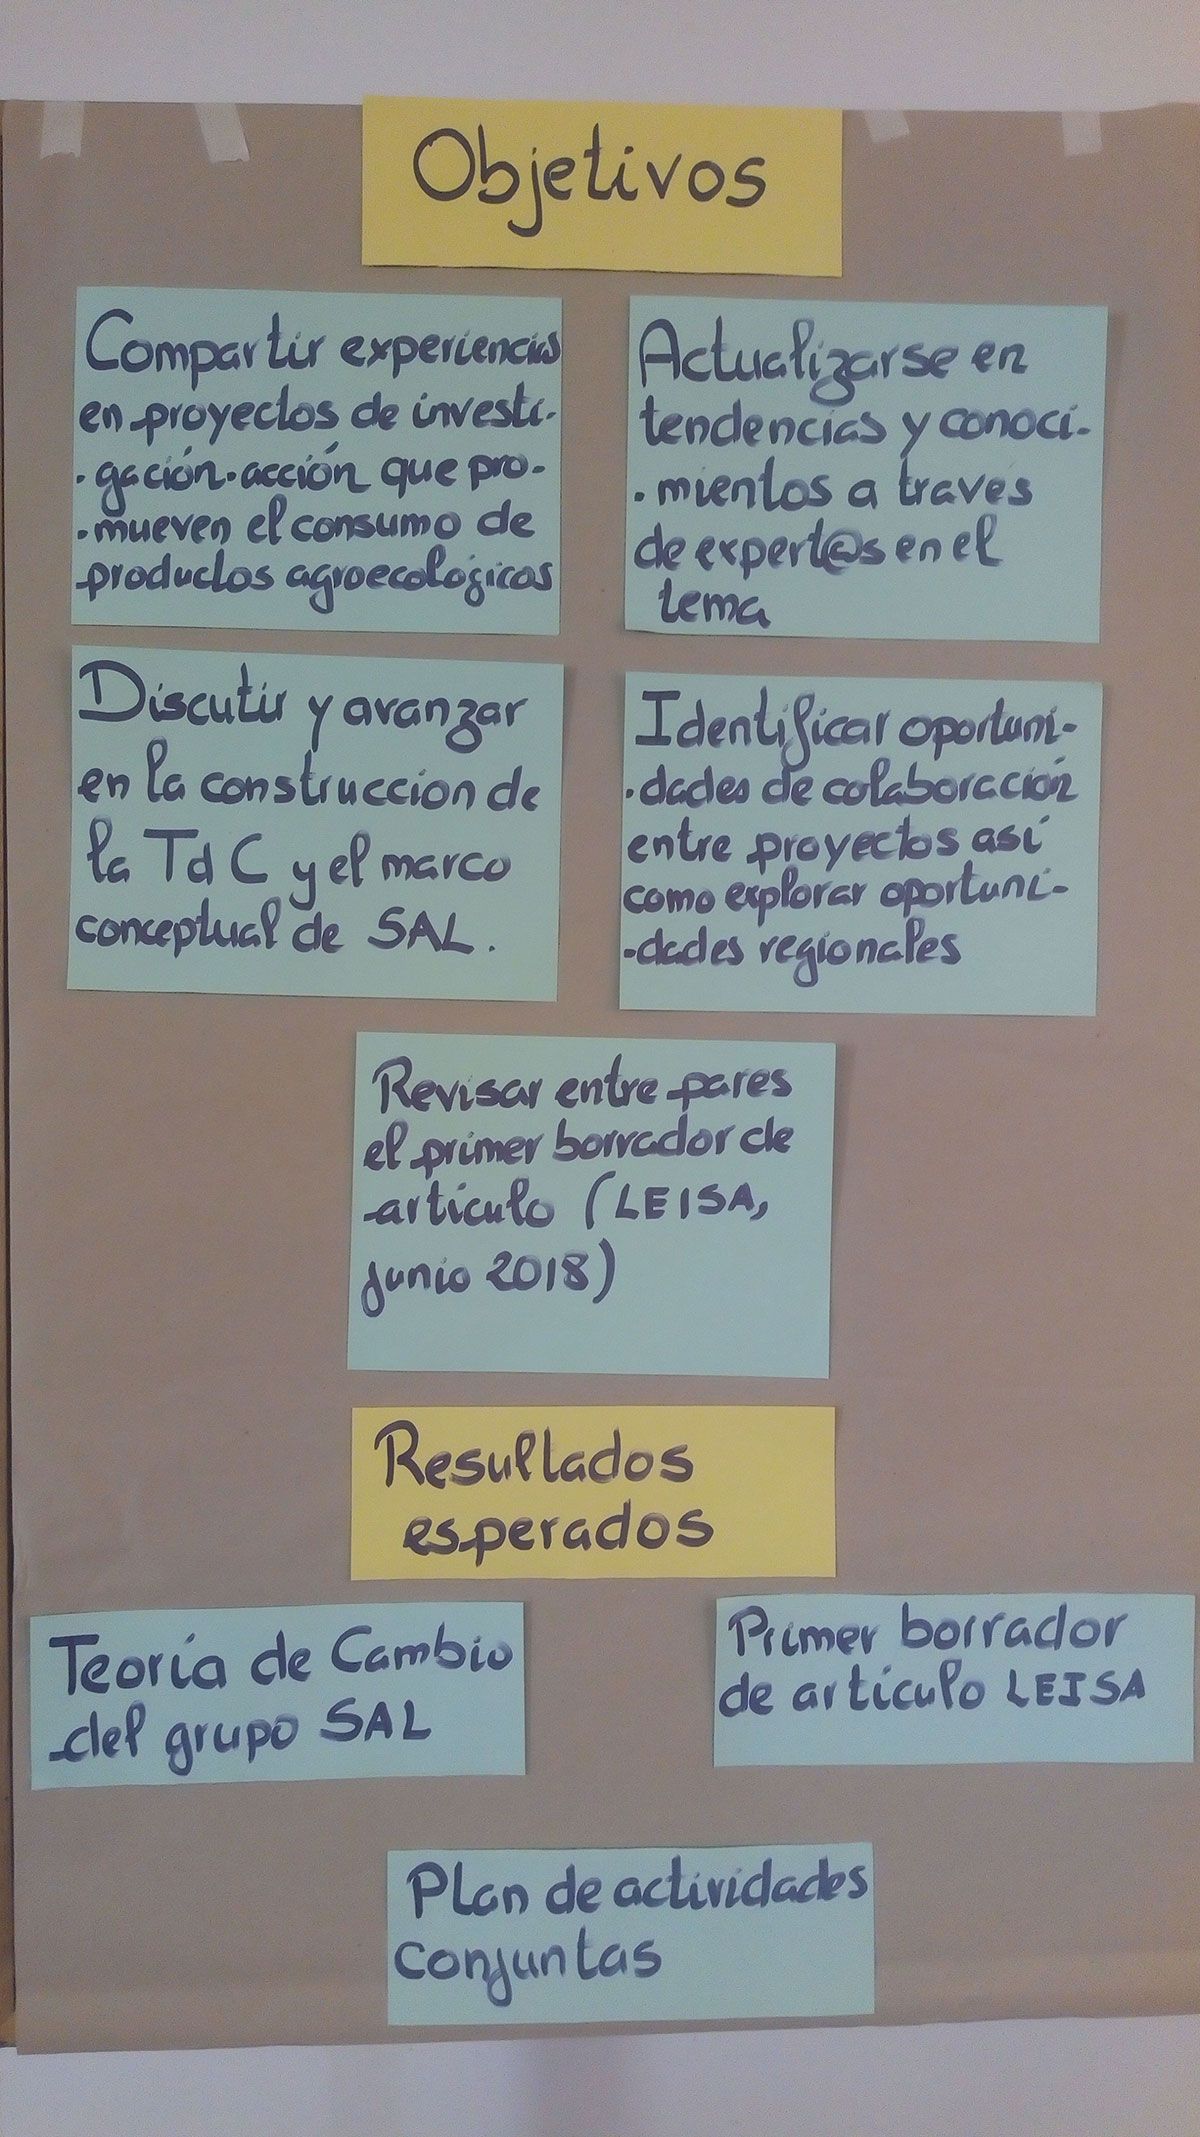 Objetivos
Compartir experiencias
en proyectos de investi-
-gación-acción que pro-
-mueven el consumo de
productos agroecológicos
Actualizarse en
tendencias y conoci-
-mientos a través
de expert@s en el
tema
Discutir y avanzar
en la construccion de
la TdC y el marco
conceptual de SAL.
Identificar oportuni-
-dades de colaboración
entre proyectos así
como explorar oportuni-
-dades regionales
Revisar entre pares
el primer borrador de
artículo (LEISA,
junio 2018)
Resultados
esperados
Teoría de Cambio
del grupo SAL
Primer borrador
de artículo LEISA
Plan de actividades
conjuntas